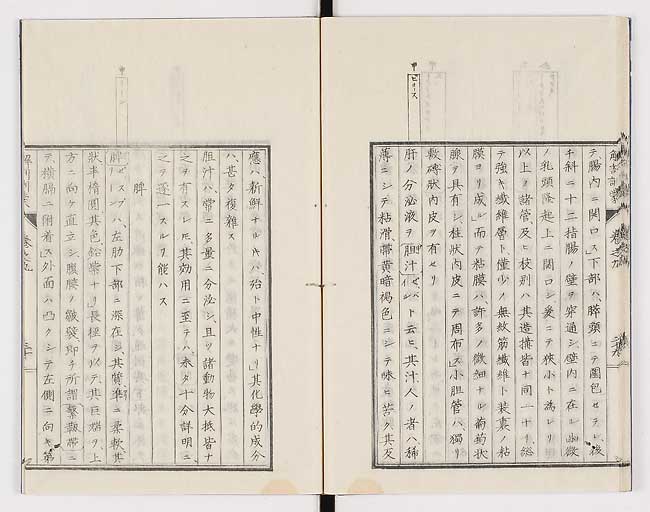 テ腸内ニ開口ス下部ハ、膵頭ニテ圍包セラレ、後
チ斜ニ十二指腸ノ壁ヲ穿通シ、壁内ニ在シ幽微
ノ乳頭隆起上ニ開口シ、爰ニテ狹小ト為レリ
以上ノ諸管及ヒ枝別ハ其造搆皆ナ同一ナリ、緻
テ強キ纖維層ト僅少ノ無紋筋纖維ト装裏ノ粘
膜ヨリ成ル而テ粘膜ハ、許多ノ微細ナル葡萄状
腺ヲ具有シ柱状内皮ニテ周布ス小胆管ハ獨リ
敷磚状内皮ヲ有セリ
肝ノ分泌液ヲ胆汁ト云ヒ、其汁、人ノ者ハ稀
薄ニシテ粘滑、帯黄暗褐色ニシテ味ヒ苦ク其反
應ハ、新鮮ナルキハ、殆ト中性ナリ其化學的成分
ハ、甚タ複雜ス
胆汁ハ、常ニ多量ニ分泌シ、且ツ諸動物大抵皆ナ
之ヲ有スレ𪜈、其効用ニ至テハ、未タ十分詳明ニ
之ヲ逐一スルヿ能ハス
脾
脾ハ、左肋下部ニ深在シ、其質、準ニ柔軟其
状半橢圓其色、鉛紫ナリ長極ヲ以テ、其巨端ヲ、上
方ニ向ケ直立シ、腹膜ノ皺襞、即チ所謂繫靱帯ニ
テ、横膈ニ附着ス外面ハ凸クシテ左側ニ向ヒ第